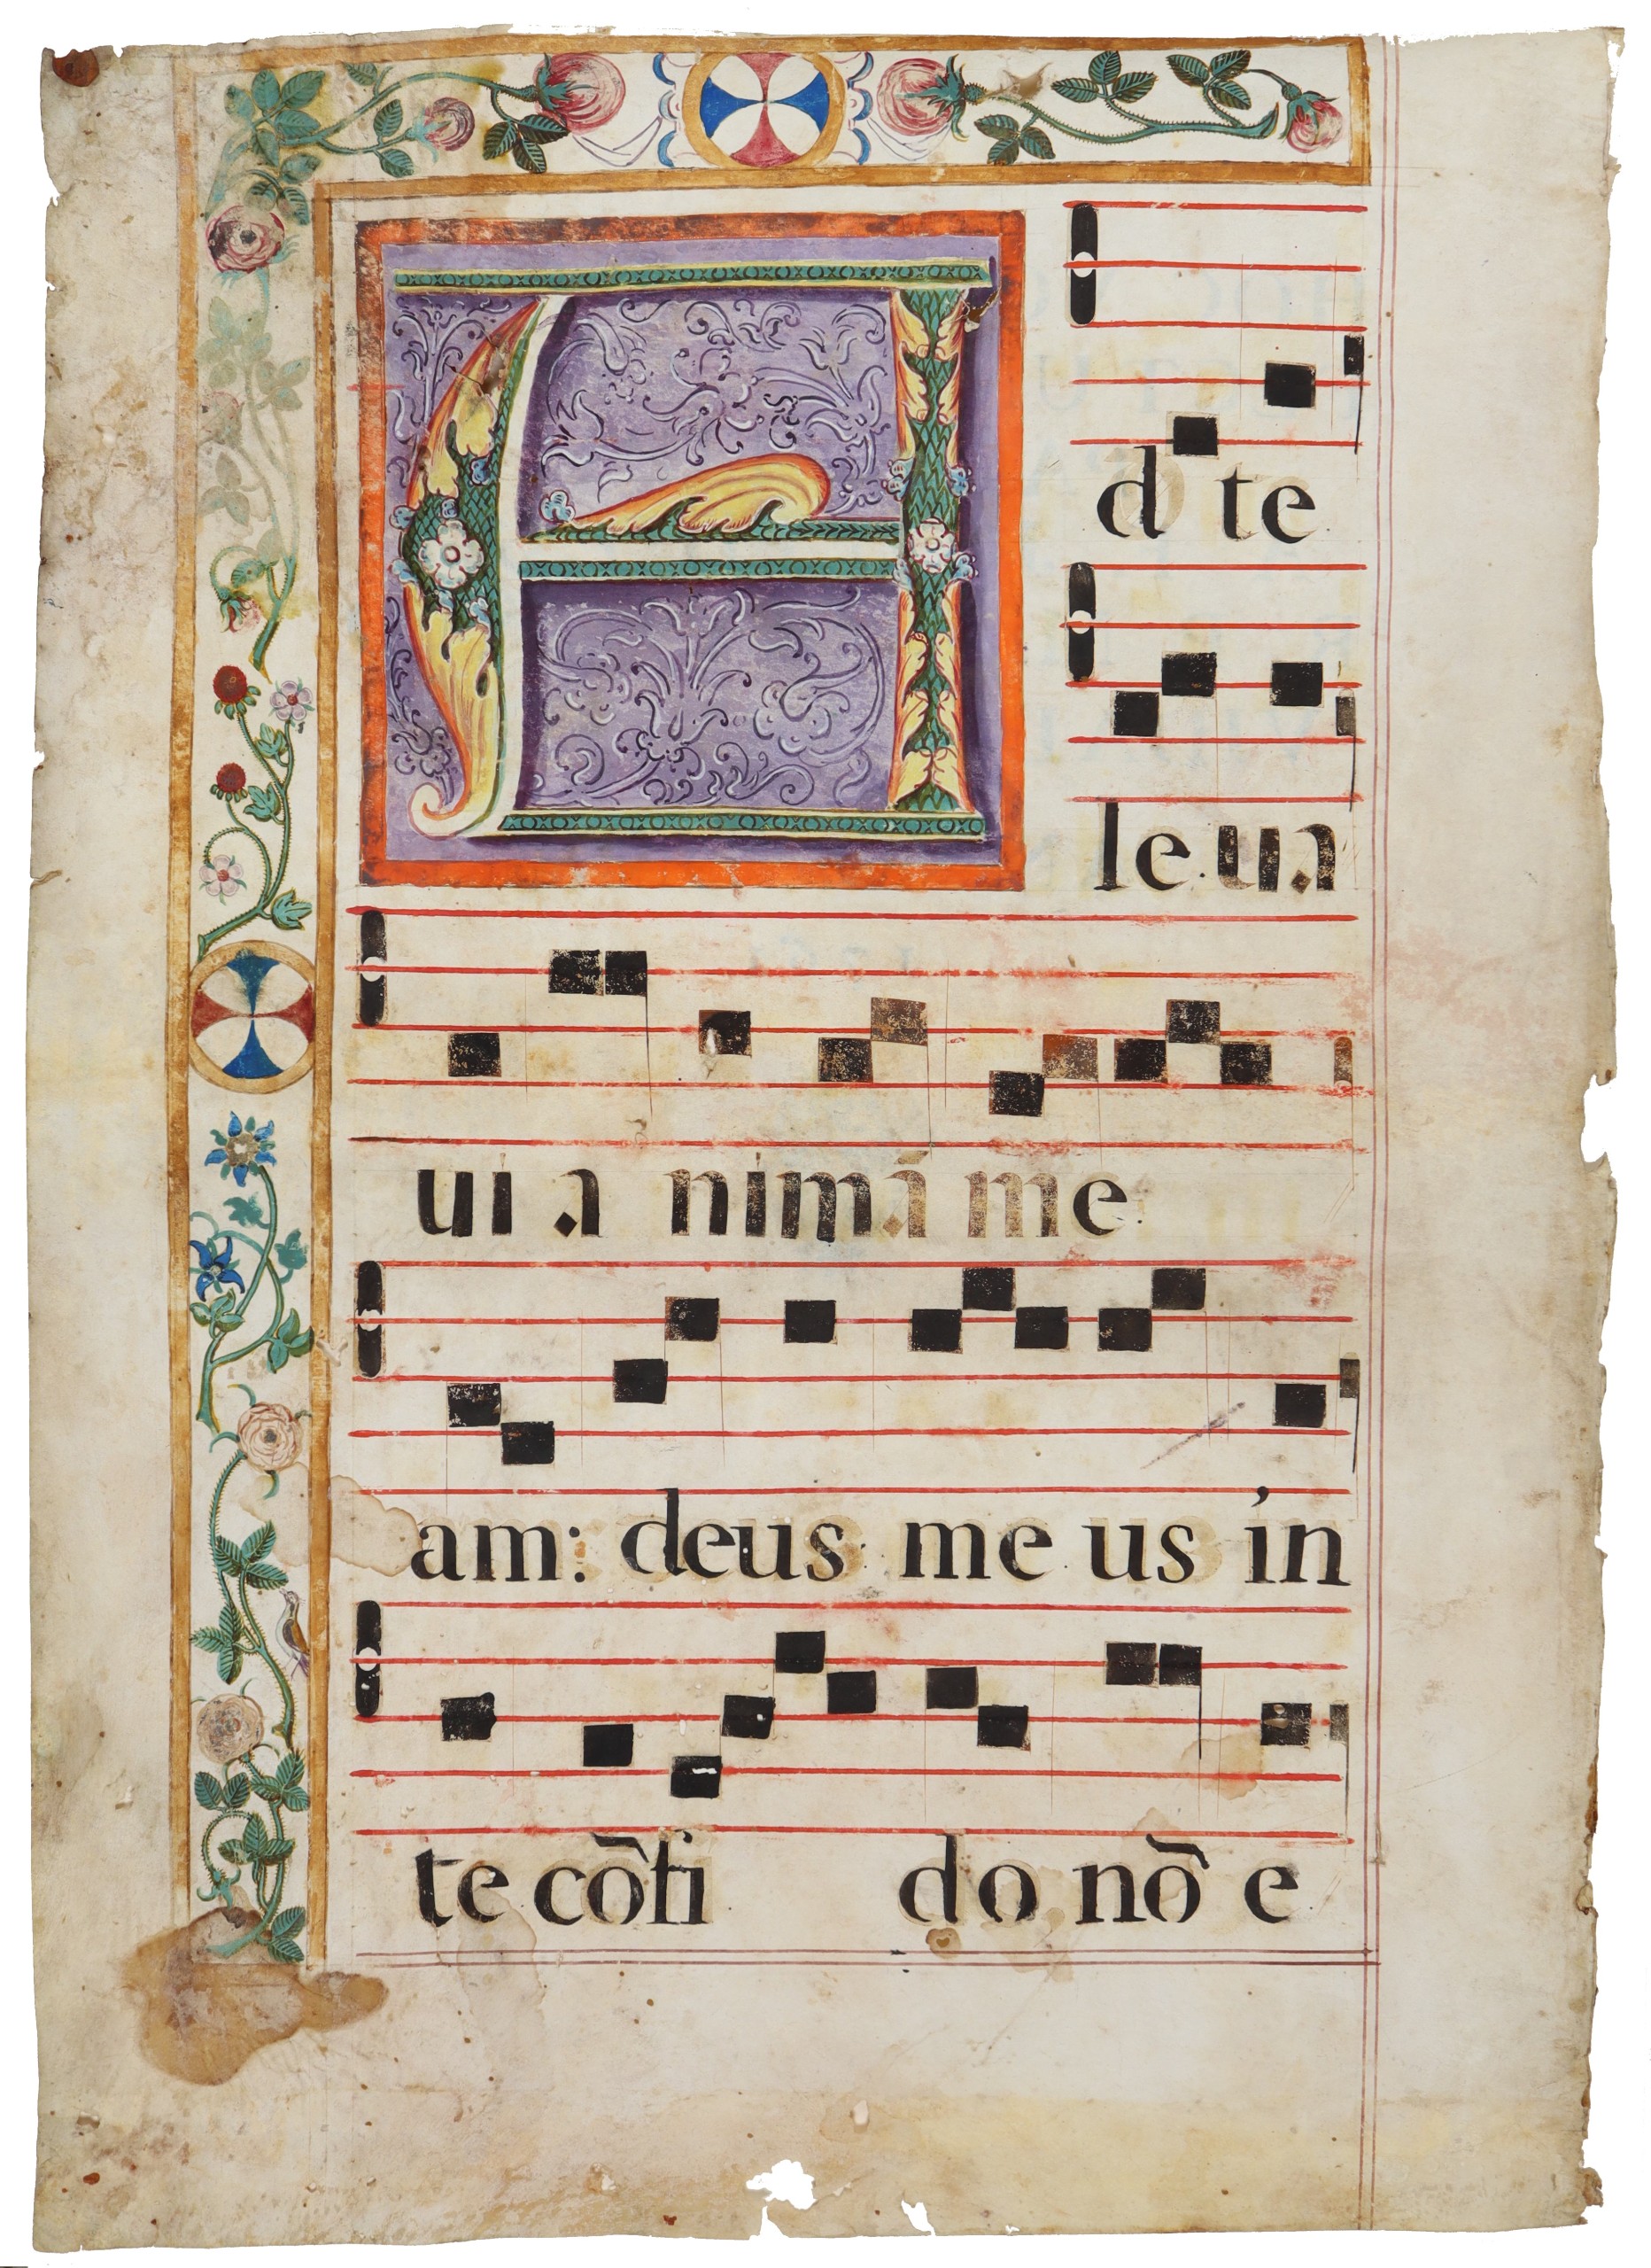 A d te
le ua
ui a nima me
am: deus me us in
te cōfi do nō e